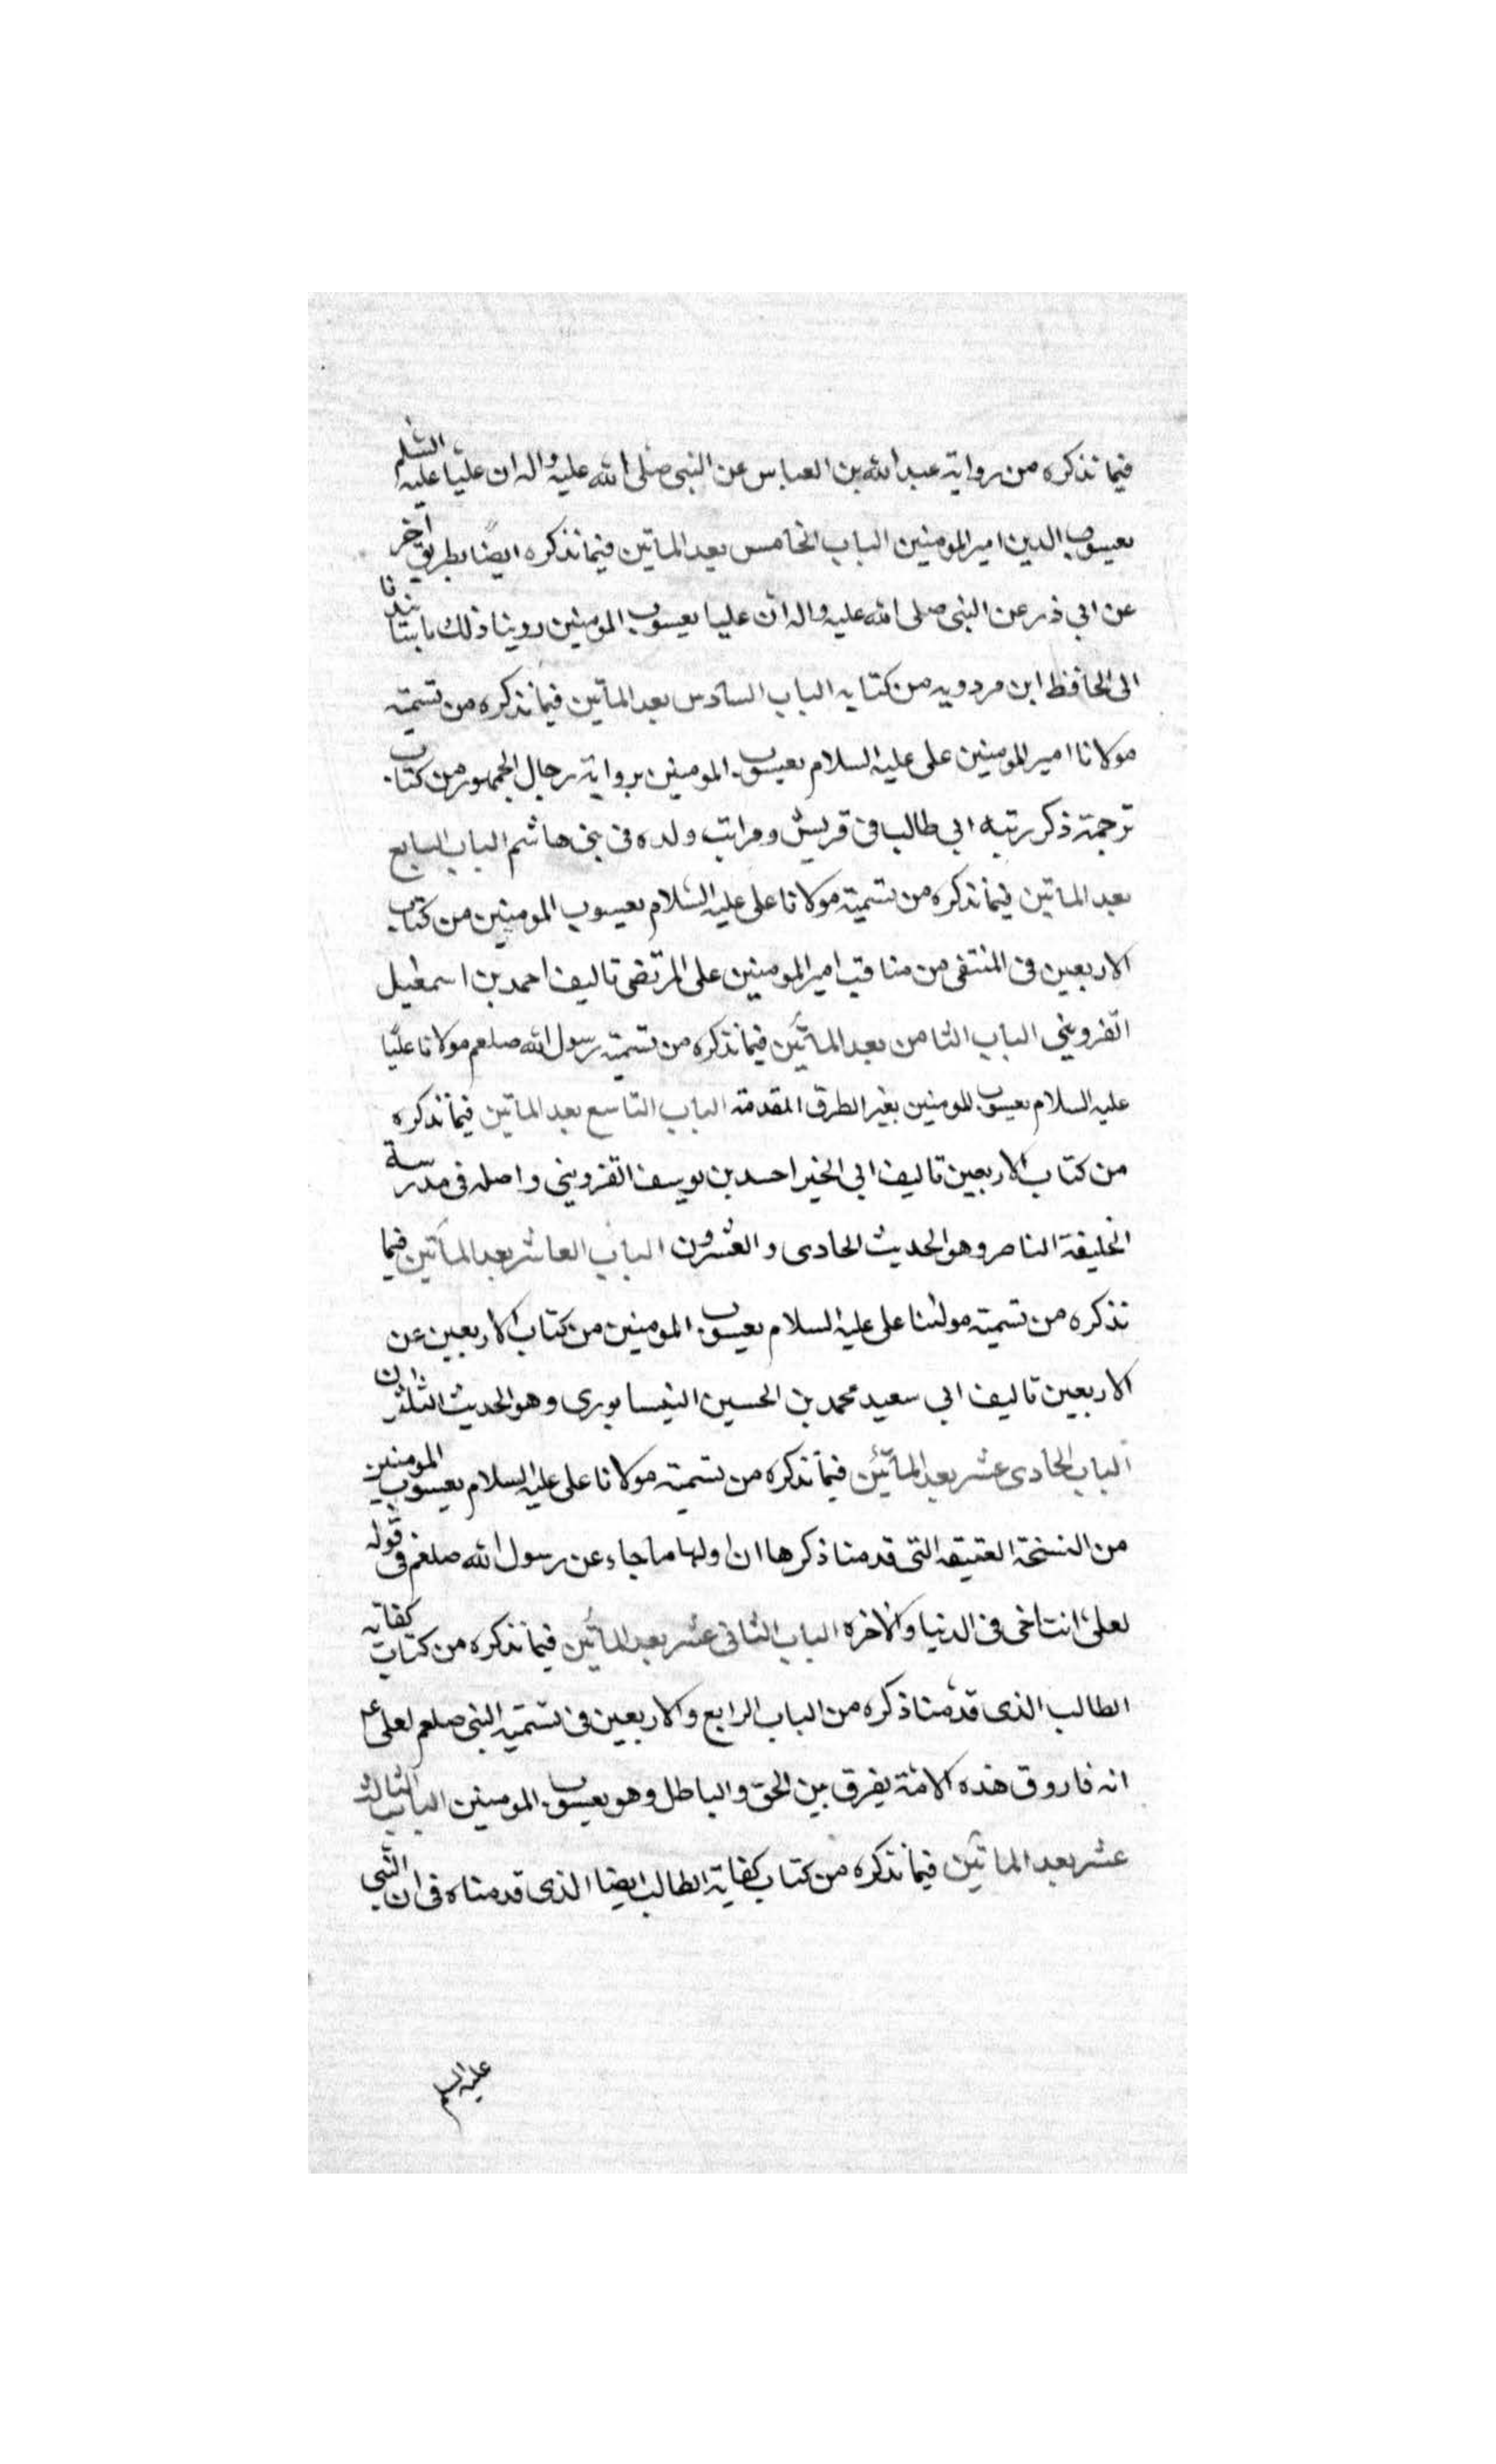 فيما نذكره من رواية عبد الله بن العباس عن النبى صلى الله عليه واله ان عليّا عليه السّلم
يعسوب الدين امير المومنين الباب الخامس بعد الماتين فيما نذكره ايضًا بطريق آخر
عن ابي ذر عن النبى صلى الله عليه واله ان عليا يعسوب المومنين روينا ذلك باسنادنا
الى الحافظ ابن مردويه من كتابه الباب السادس بعد الماتين فيما نذكره من تسمية
مولانا امير المومنين على عليه السلام يعسوب المومنين برواية رجال الجمهور من كتاب
ترجمة ذكر رتبه ابي طالب فى قريش ومراتب ولده فى بنى هاشم الباب السابع
بعد الماتين فيما نذكره من تسمية مولانا على عليه السّلام يعسوب المومنين من كتاب
الاربعين فى المنتقى من مناقب امير المومنين على المرتضى تاليف احمد بن اسمعيل
القزوينى الباب الثامن بعد المأتين فيما نذكره من تسمية رسول الله صلعم مولانا عليّا
عليه السلام يعسوب المومنين بغير الطرق المقدمة الباب التاسع بعد الماتين فيما نذكره
من كتاب الاربعين تاليف ابى الخير احمد بن يوسف القزوينى واصله فى مدرسة
الخليفة الناصر وهو الحديث الحادى والعشرون الباب العاشر بعد الماتين فيما
نذكره من تسمية مولنا على عليه السلام يعسوب المومنين من كتاب الاربعين عن
الاربعين تاليف ابى سعيد محمد بن الحسين النيسابورى وهو الحديث الثلثون
الباب الحادى عشر بعد المأتين فيما نذكره من تسمية مولانا على عليه السلام يعسوب المومنين
من النسخة العتيقه التى قدمنا ذكرها ان اولها ما جاء عن رسول الله صلعم فى قوله
لعلى انت اخى فى الدنيا والاخره الباب الثانى عشر بعد المأتين فيما نذكره من كتاب كفاية
الطالب الذى قدمنا ذكره من الباب الرابع والاربعين فى تسمية النبى صلعم لعلى ع
انه فاروق هذه الامّة يفرق بين الحق والباطل وهو يعسوب المومنين الباب الثالث
عشر بعد الماتين فيما نذكره من كتاب كفاية الطالب ايضا الذى قدمناه فى ان النّبي
عليه السلم